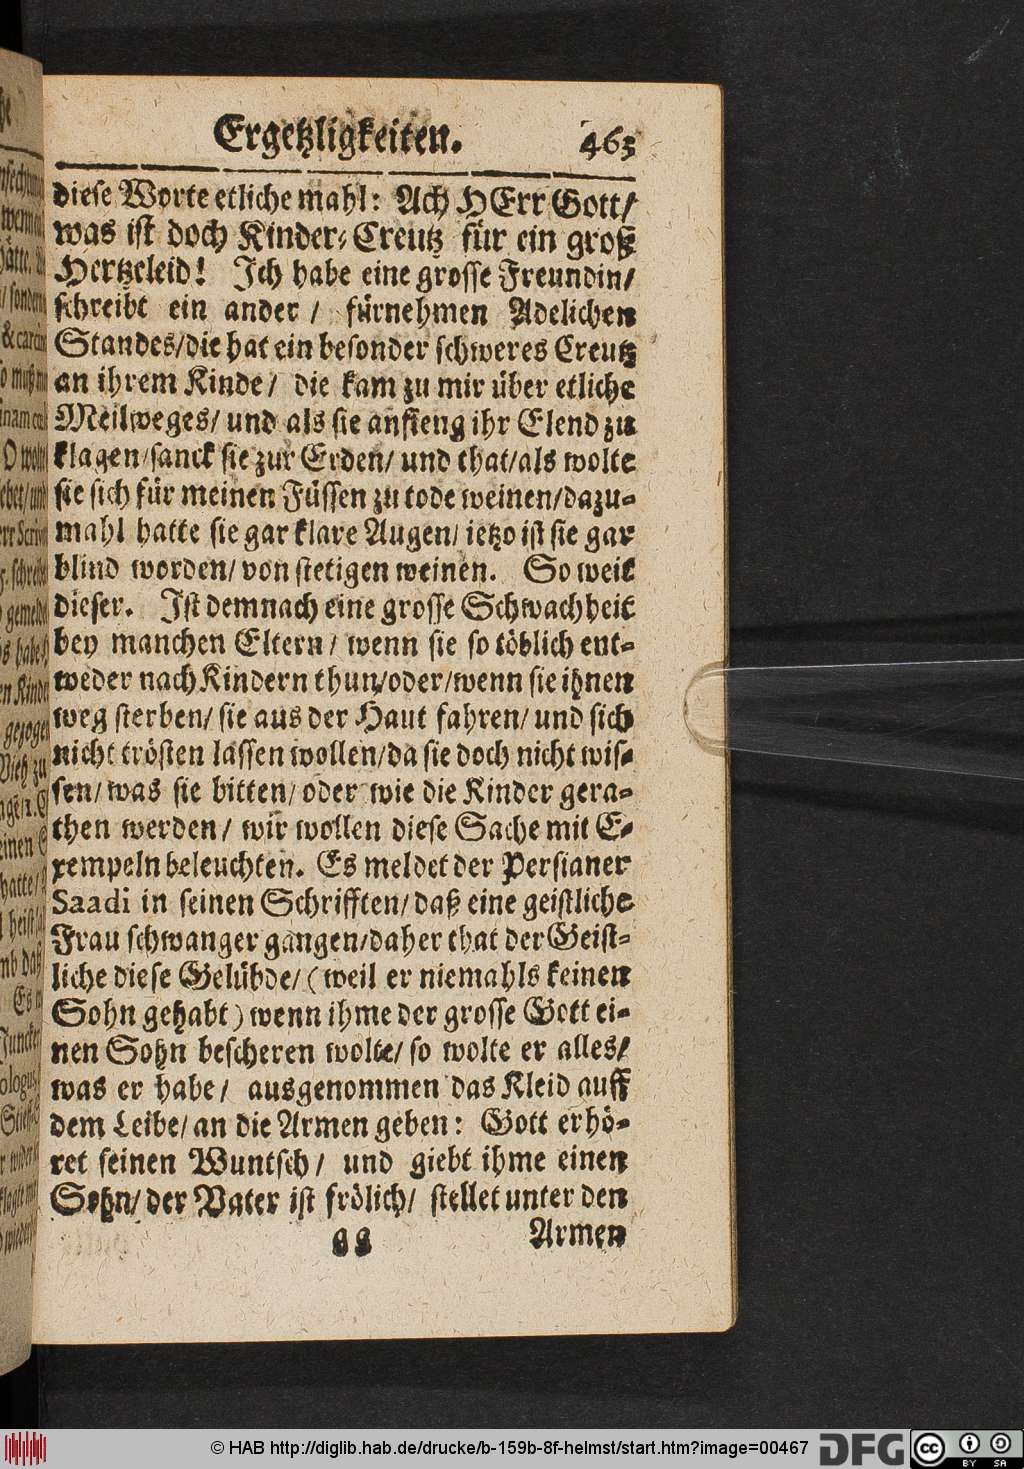 Ergetzligkeiten. 463
diese Worte etliche mahl: Ach HErr Gott/
was ist doch Kinder-Creutz für ein groß
Hertzeleid! Ich habe eine grosse Freundin/
schreibt ein ander / fürnehmen Adelichen
Standes/die hat ein besonder schweres Creutz
an ihrem Kinde/ die kam zu mir über etliche
Meilweges/ und als sie anfieng ihr Elend zu
klagen/sanck sie zur Erden/ und that/als wolte
sie sich für meinen Füssen zu tode weinen/dazu-
mahl hatte sie gar klare Augen/ ietzo ist sie gar
blind worden/ von stetigen weinen. So weit
dieser. Ist demnach eine grosse Schwachheit
bey manchen Eltern/ wenn sie so töblich ent-
weder nach Kindern thun/oder/wenn sie ihnen
weg sterben/ sie aus der Haut fahren/ und sich
nicht trösten lassen wollen/da sie doch nicht wis-
sen/ was sie bitten/ oder wie die Kinder gera-
then werden/ wir wollen diese Sache mit E-
xempeln beleuchten. Es meldet der Persianer
Saadi in seinen Schrifften/ daß eine geistliche
Frau schwanger gangen/daher that der Geist-
liche diese Gelübde/ (weil er niemahls keinen
Sohn gehabt) wenn ihme der grosse Gott ei-
nen Sohn bescheren wolte/ so wolte er alles/
was er habe/ ausgenommen das Kleid auff
dem Leibe/ an die Armen geben: Gott erhö-
ret seinen Wuntsch/ und giebt ihme einen
Sohn/ der Vater ist frölich/ stellet unter den
gg Armen
© HAB http://diglib.hab.de/drucke/b-159b-8f-helmst/start.htm?image=00467 DFG cc BY SA